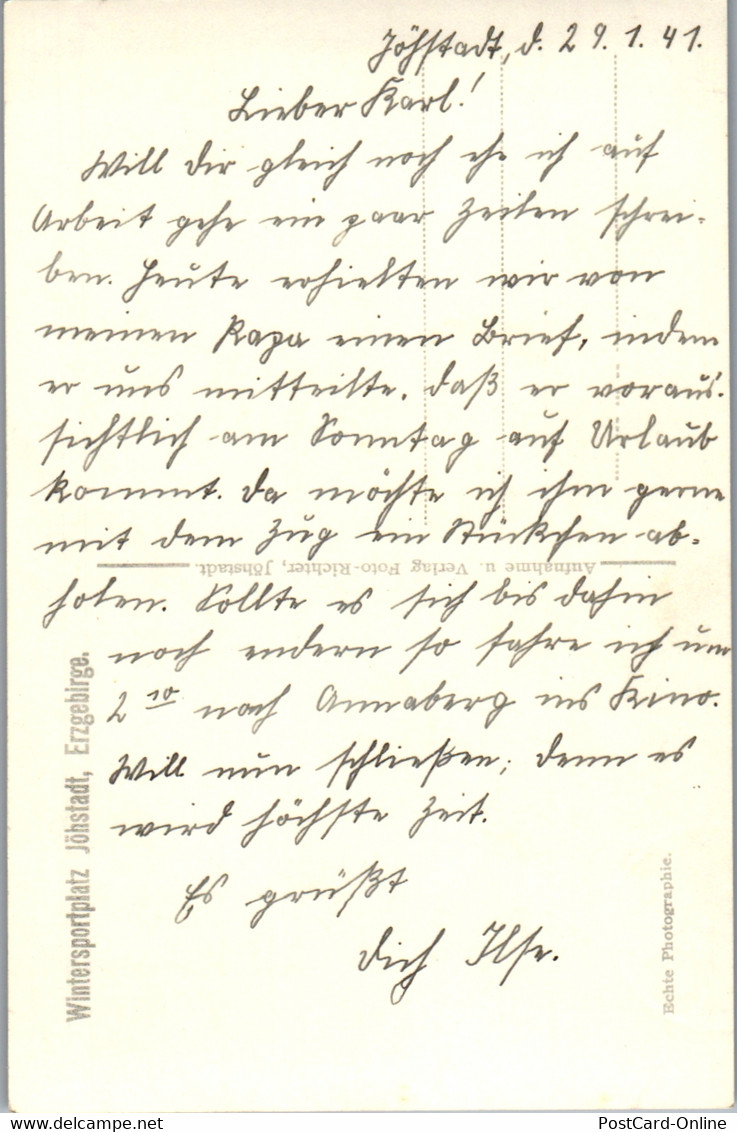 Jöhstadt, d. 29.1.41.
Lieber Karl!
Will Dir gleich noch ehe ich auf
Arbeit gehe ein paar Zeilen schrei-
ben. Heute erhielten wir von
meinen Papa einen Brief, indem
er uns mitteilte, daß er voraus-
sichtlich am Sonntag auf Urlaub
kommt. Da möchte ich ihm gerne
mit dem Zug ein Stückchen ab-
Aufnahme u. Verlag Foto-Richter, Jöhstadt.
holen. Sollte es sich bis dahin
noch endern so fahre ich um
2 10 nach Annaberg ins Kino.
Will nun schließen; denn es
wird höchste Zeit.
Es grüßt
Dich Ilse.
Wintersportplatz Jöhstadt, Erzgebirge.
Echte Photographie.
www.delcampe.net
PostCard-Online